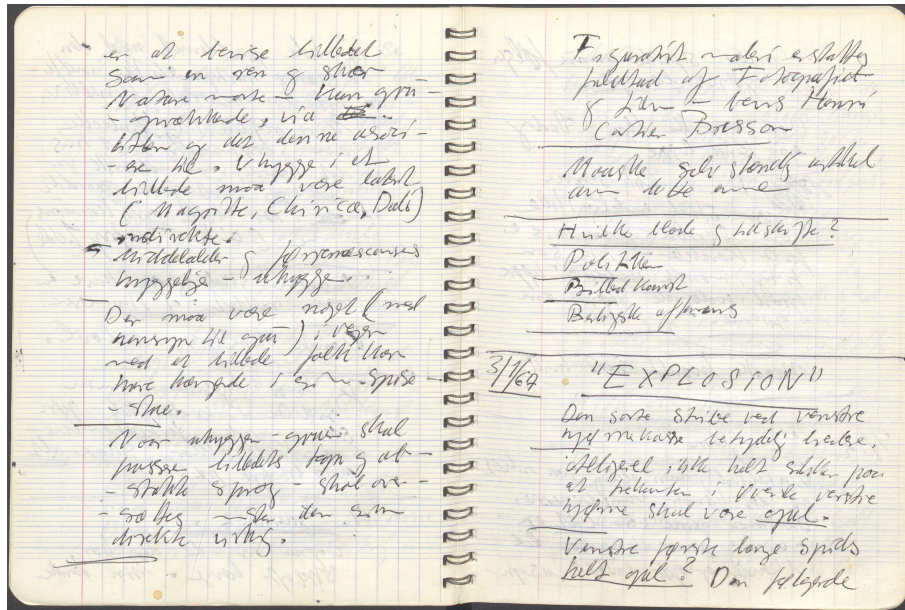 er at bevise billedet
som en ren og skær
Nature morte – kun
, via
titlen og det denne associ-
-ere til. Uhygge i et
billede maa være
(Magritte, Chirico, Dali)
indirekte.
Middelalder og
uhygge..
Der maa være noget (med
hensyn til gru) i vejen
med et billede folk kan
have hængende i spise-
-stue.
Naar uhyggen – gruen skal
passere billedets og ab-
-strakte sprog – skal over-
-sættes mister den sin
direkte virkning.
Figurativt maleri erstattes
af Fotografiet
og film – Henri
Cartier Bresson
Maaske selvstændig artikel
om dette emne
Hvilke blade og tidsskrifte?
Politiken
Billedkunst
Berlingske aftenavis
3/1/67 "EXPLOSION"
Den sorte stribe ved venstre
hjørnekasse betydelig bredere.
Alligevel ikke helt sikker paa
at trekanten i øverste venstre
hjørne skal være gul.
Venstre første lange spids
helt gul? Den følgende